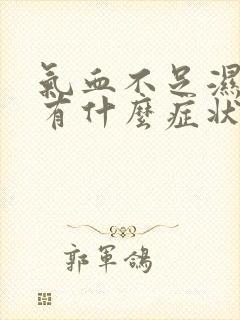 氣血不足濕
有什麼症狀
郭軍鴿